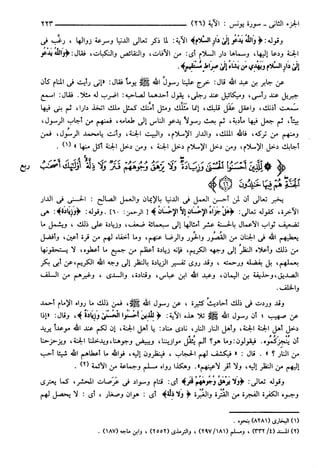 الجزء الثاني - سورة يونس : الآية (٢٦) ٢٢٣
وقوله: ﴿وَاللَّهُ يَدْعُو إِلَى دَارِ السَّلَامِ﴾ الآية: لما ذكر تعالى الدنيا وسرعة زوالها ، رغب في
الجنة ودعا إليها، وسماها دار السلام أي: من الآفات، والنقائص والنكبات، فقال: ﴿وَاللَّهُ يَدْعُو
إِلَى دَارِ السَّلَامِ وَيَهْدِي مَن يَشَاءُ إِلَى صِرَاطٍ مُّسْتَقِيمٍ﴾.
عن جابر بن عبد الله قال: خرج علينا رسول الله ﷺ يوماً فقال: «إني رأيت في المنام كأن
جبريل عند رأسي، وميكائيل عند رجلي، يقول أحدهما لصاحبه: اضرب له مثلاً. فقال: اسمع
سمعت أذنك، واعقل عقل قلبك، إنما مثلك ومثل أمتك كمثل ملك اتخذ داراً، ثم بنى فيها
بيتاً، ثم جعل فيها مأدبة، ثم بعث رسولاً يدعو الناس إلى طعامه، فمنهم من أجاب الرسول،
ومنهم من تركه، فالله الملك، والدار الإسلام، والبيت الجنة، وأنت يامحمد الرسول، فمن
أجابك دخل الإسلام، ومن دخل الإسلام دخل الجنة ، ومن دخل الجنة أكل منها » (١) .
﴿لِّلَّذِينَ أَحْسَنُوا الْحُسْنَى وَزِيَادَةٌ وَلَا يَرْهَقُ وُجُوهَهُمْ قَتَرٌ وَلَا ذِلَّةٌ أُولَئِكَ أَصْحَابُ ربع
الْجَنَّةِ هُمْ فِيهَا خَالِدُونَ (٢٦)﴾
يخبر تعالى أن لمن أحسن العمل في الدنيا بالإيمان والعمل الصالح : الحسنى في الدار
الآخرة، كقوله تعالى: ﴿هَلْ جَزَاءُ الْإِحْسَانِ إِلَّا الْإِحْسَانُ﴾ [الرحمن: ٦٠]. وقوله: ﴿وَزِيَادَةٌ﴾: هي
تضعيف ثواب الأعمال بالحسنة عشر أمثالها إلى سبعمائة ضعف، وزيادة على ذلك ، ويشمل ما
يعطيهم الله في الجنان من القصور والحور والرضا عنهم، وما أخفاه لهم من قرة أعين، وأفضل
من ذلك وأعلاه النظر إلى وجهه الكريم، فإنه زيادة أعظم من جميع ما أعطوه، لا يستحقونها
بعملهم، بل بفضله ورحمته ، وقد روي تفسير الزيادة بالنظر إلى وجه الله الكريم، عن أبي بكر
الصديق، وحذيفة بن اليمان، وعبد الله ابن عباس، وقتادة، والسدي ، وغيرهم من السلف
والخلف.
وقد وردت في ذلك أحاديث كثيرة ، عن رسول الله ﷺ، فمن ذلك ما رواه الإمام أحمد
عن صهيب ؛ أن رسول الله ﷺ تلا هذه الآية: ﴿لِّلَّذِينَ أَحْسَنُوا الْحُسْنَى وَزِيَادَةٌ﴾، وقال: «إذا
دخل أهل الجنة الجنة، وأهل النار النار، نادى مناد: يا أهل الجنة، إن لكم عند الله موعداً يريد
أن يُنجزكموه. فيقولون: وما هو؟ ألم يُثقل موازيننا، ويبيض وجوهنا، ويدخلنا الجنة، ويزحزحنا
من النار ؟ » . قال : « فيكشف لهم الحجاب ، فينظرون إليه، فوالله ما أعطاهم الله شيئاً أحب
إليهم من النظر إليه، ولا أقر لأعينهم». وهكذا رواه مسلم وجماعة من الأئمة (٢) .
وقوله تعالى: ﴿وَلَا يَرْهَقُ وُجُوهَهُمْ قَتَرٌ﴾ أي: قتام وسواد في عرصات المحشر، كما يعتري
وجوه الكفرة الفجرة من القترة والغبرة ﴿وَلَا ذِلَّةٌ﴾ أي : هوان وصغار ، أي : لا يحصل لهم
(١) البخاري (٨٢٨١) بنحوه .
(٢) المسند (٤ / ٣٣٢) ، ومسلم (١٨١/ ٢٩٧) ، والترمذي (٢٥٥٢) ، وابن ماجه (١٨٧) .